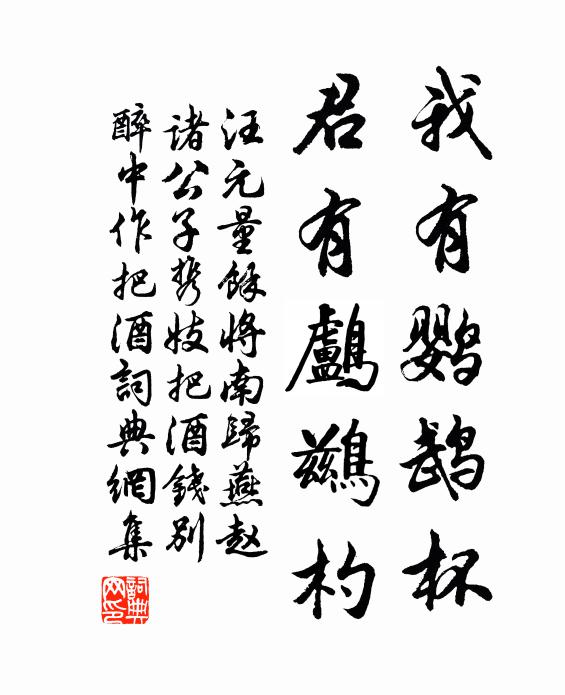 我有鹦鹉杯
君有鸕鷀杓
汪元量餘将南歸燕赵
諸公子携妓把酒錢别
醉中作把酒詞典網集
詞典网印